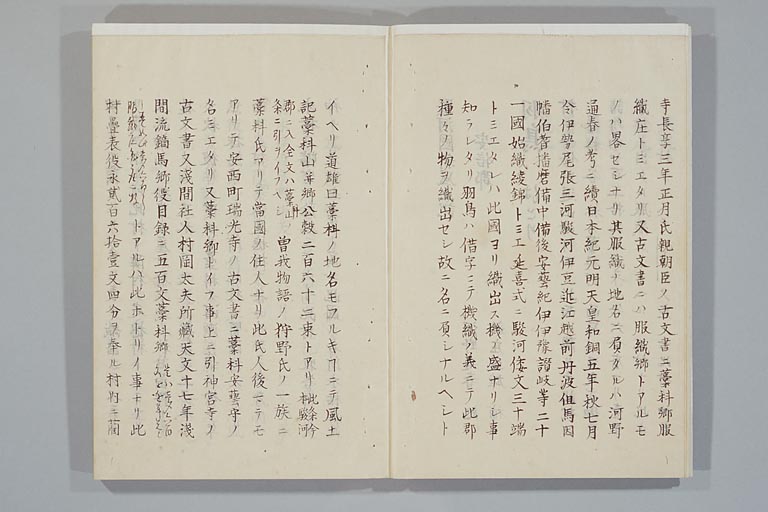 寺長享三年正月氏親朝臣ノ古文書ニ藁科郷服
織庄トミエタリ又古文書ニハ服織郷トアルモ
ノハ畧セシナリ其服織ノ地名ニ負タルハ河野
通春ノ考ニ續日本紀元明天皇和銅五年秋七月
令伊勢尾張三河駿河伊豆近江越前丹波但馬因
幡伯耆播磨備中備後安藝紀伊伊豫讃岐等二十
一國始織綾錦トミエ延喜式ニ駿河倭文三十端
トミエタレハ此國ヨリ織出ス機ノ盛ナリシ事
知ラレタリ羽鳥ハ借字ニテ機織ノ義ニテ此郡
種々ノ物ヲ織出セシ故ニ名ニ負シナルヘシト
イヘリ道雄曰藁科ノ地名モフルキ ニテ風土
記藁科山 公穀二百六十二束トアリ此条今本駿河
郡ニ入全文ハ藁科山条ニ引ヲイフヘシ曽我物語ノ狩野氏ノ一族ニ
藁科氏アリテ當國ノ住人ナリ此氏人後マテモ
アリテ安西町瑞光寺ノ古文書ニ藁科安藝守ノ
名ミエタリ又藁科郷トイフ事上ニ引神宮寺ノ
古文書又淺間社人村岡太夫所藏天文十七年淺
間流鏑馬郷役目録ニ五百文藁科郷
トアルハ此ホトリノ事ナリ此
村疊表役永貳百六拾壹文四分ヲ奉ル村内ニ藺